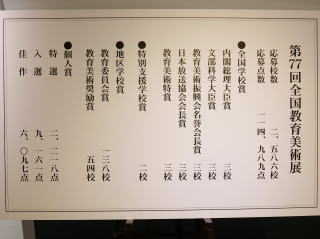 第77回全国教育美術展
応募校数 二、五八六校
応募点数 一一四、九八九点
●全国学校賞
内閣総理大臣賞 三校
文部科学大臣賞 三校
教育美術振興会名誉会長賞 三校
日本放送協会会長賞 三校
教育美術特賞 三校
●特別支援学校賞 二校
●地区学校賞
教育委員会賞 一三八校
教育美術奨励賞 五四校
●個人賞
特選 二、二一八点
入選 九、一六一点
佳作 六、〇九七点